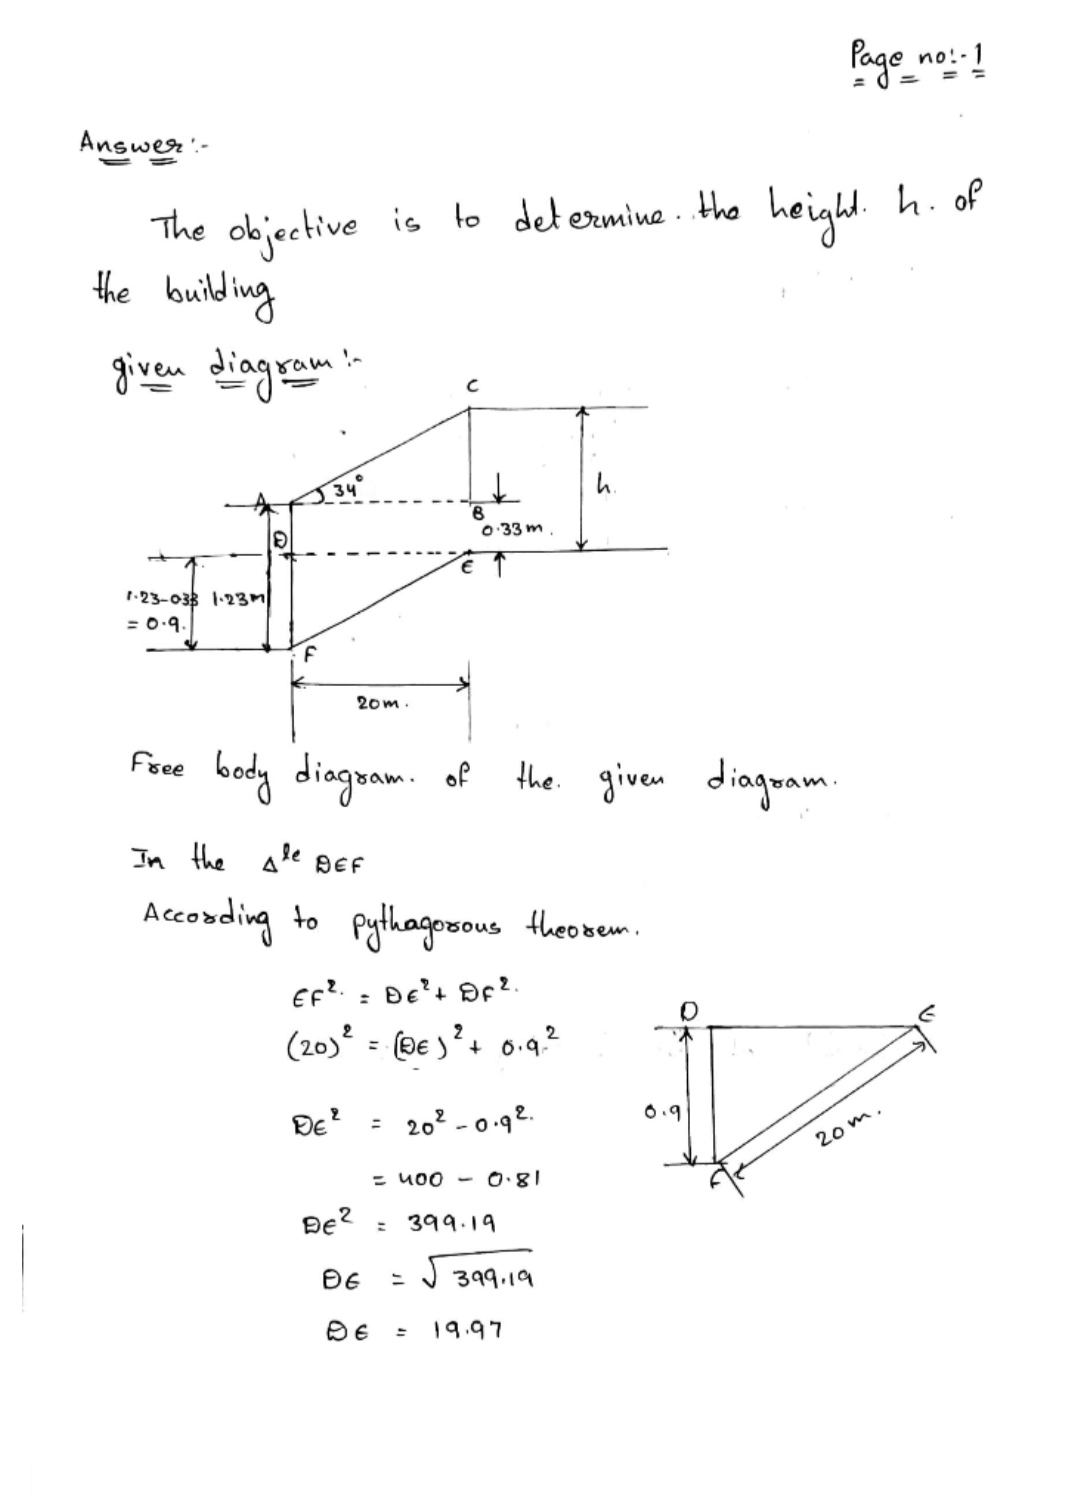 Page no:-1
Answer:-
The objective is to determine. the height. h. of
the building
given diagram:-
C
A
34°
h.
B
0.33m.
D
E
1.23-033
1.23m
= 0.9.
F
20m.
Free body diagram. of the. given diagram.
In the Δle DEF
According to pythagorous theorem.
EF². = DE² + DF².
(20)² = (DE)² + 0.9²
DE² = 20² - 0.9².
= 400 - 0.81
DE² = 399.19
DE = √399.19
DE = 19.97
D
E
0.9
20m.
F